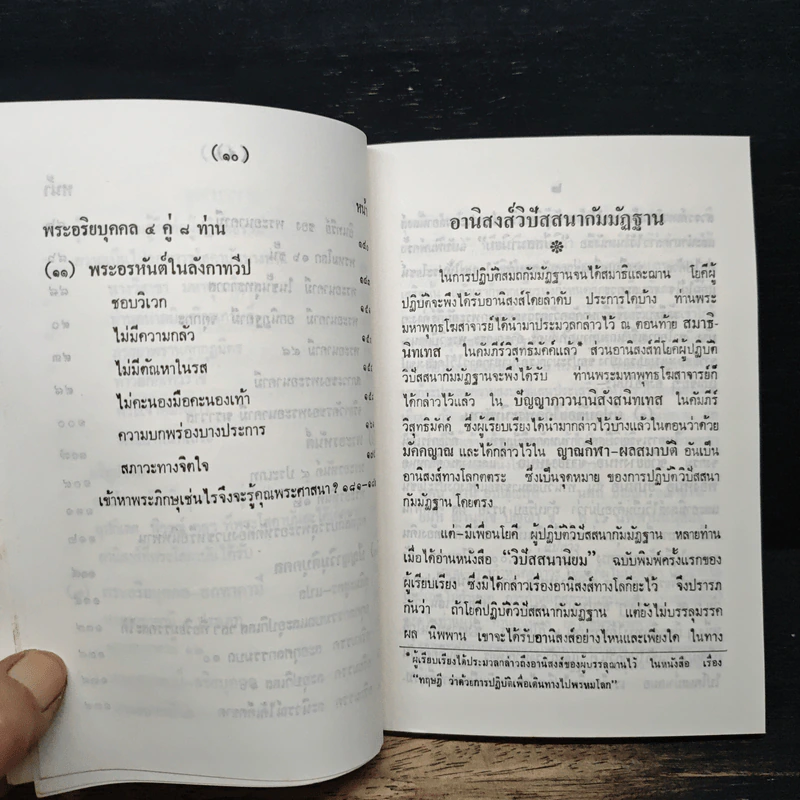 (๑๐)
หน้า
พระอริยบุคคล ๔ คู่ ๘ ท่าน
(๑๑) พระอรหันต์ในลังกาทวีป
ชอบวิเวก
ไม่มีความกลัว
ไม่มีตัณหาในรส
ไม่คะนองมือคะนองเท้า
ความบกพร่องบางประการ
สภาวะทางจิตใจ
เข้าหาพระภิกษุเช่นไรจึงจะรู้คุณพระศาสนา ?
อานิสงส์วิปัสสนากัมมัฏฐาน
ในการปฏิบัติสมถกัมมัฏฐานจนได้สมาธิและฌาน โยคีผู้
ปฏิบัติจะพึงได้รับอานิสงส์โดยลำดับ ประการใดบ้าง ท่านพระ
มหาพุทธโฆสาจารย์ได้นำมาประมวลกล่าวไว้ ณ ตอนท้าย สมาธิ-
นิทเทส ในคัมภีร์วิสุทธิมัคค์แล้ว* ส่วนอานิสงส์ที่โยคีผู้ปฏิบัติ
วิปัสสนากัมมัฏฐานจะพึงได้รับ ท่านพระมหาพุทธโฆสาจารย์ก็
ได้กล่าวไว้แล้ว ใน ปัญญาภาวนานิสังสนิทเทส ในคัมภีร์
วิสุทธิมัคค์ ซึ่งผู้เรียบเรียงได้นำมากล่าวไว้บ้างแล้วในตอนว่าด้วย
มัคคญาณ และได้กล่าวไว้ใน ญาณกีฬา-ผลสมาบัติ อันเป็น
อานิสงส์ทางโลกุตตระ ซึ่งเป็นจุดหมาย ของการปฏิบัติวิปัสสนา
กัมมัฏฐานโดยตรง
แต่-มีเพื่อนโยคี ผู้ปฏิบัติวิปัสสนากัมมัฏฐาน หลายท่าน
เมื่อได้อ่านหนังสือ “วิปัสสนานิยม” ฉบับพิมพ์ครั้งแรกของ
ผู้เรียบเรียง ซึ่งมิได้กล่าวเรื่องอานิสงส์ทางโลกียะไว้ จึงปรารภ
กันว่า ถ้าโยคีปฏิบัติวิปัสสนากัมมัฏฐาน แต่ยังไม่บรรลุมรรค
ผล นิพพาน เขาจะได้รับอานิสงส์อย่างไหนและเพียงใด ในทาง
*ผู้เรียบเรียงได้ประมวลกล่าวถึงอานิสงส์ของผู้บรรลุฌานไว้ ในหนังสือ เรื่อง
“ทฤษฎี ว่าด้วยการปฏิบัติเพื่อเดินทางไปพรหมโลก”